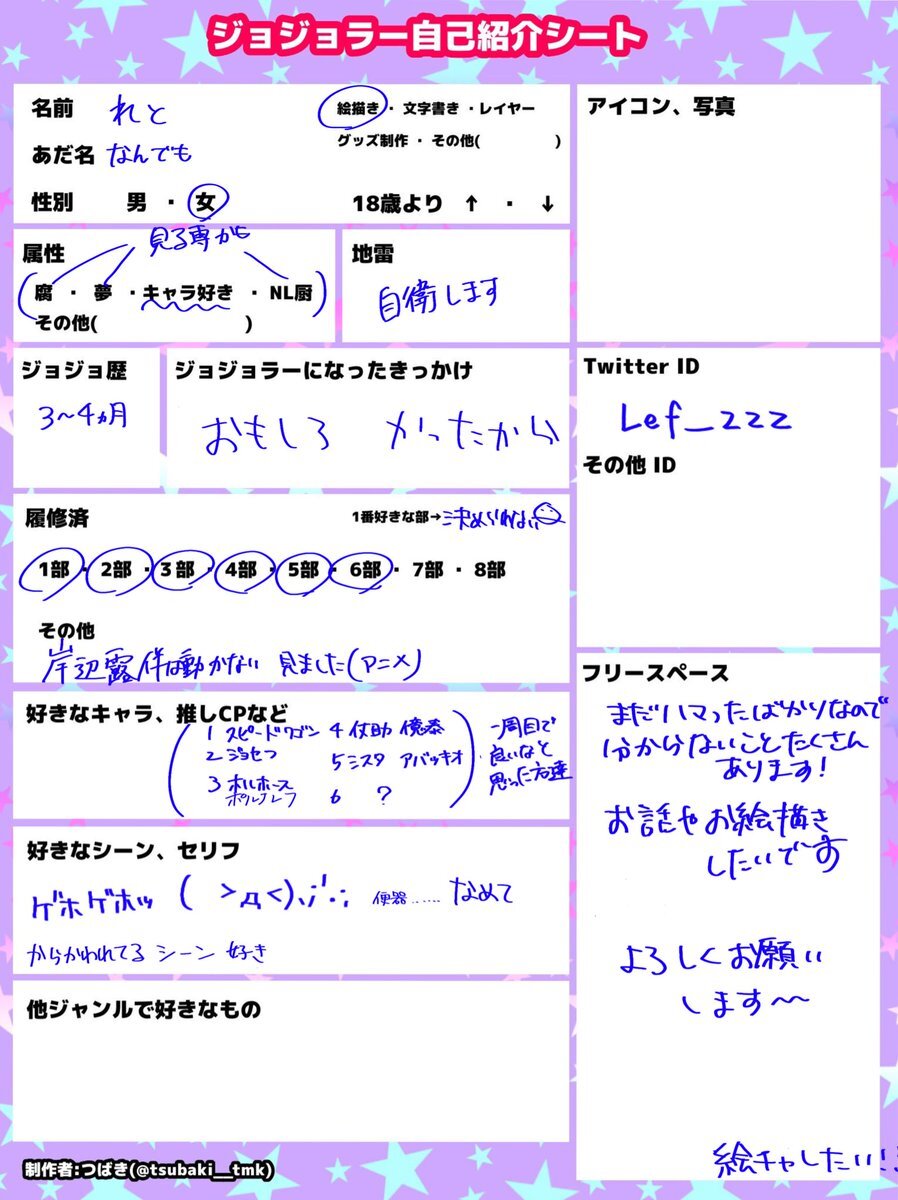 ジョジョラー自己紹介シート
名前 れと
絵描き・文字書き・レイヤー
グッズ制作・その他( )
あだ名 なんでも
性別 男・女
18歳より ↑ ・ ↓
属性
見る専かも
腐・夢・キャラ好き・NL厨
その他( )
地雷
自衛します
ジョジョ歴
3~4ヵ月
ジョジョラーになったきっかけ
おもしろ かったから
履修済
1番好きな部→決めれない
1部・2部・3部・4部・5部・6部・7部・8部
その他
岸辺露伴は動かない 見ました(アニメ)
好きなキャラ、推しCPなど
1 スピードワゴン 4 仗助 億泰
2 ジョセフ 5 ミスタ アバッキオ
3 ホルホース
ポルナレフ 6 ?
一周目で
良いなと
思った方達
好きなシーン、セリフ
ゲホゲホッ ( >д<).;'.; 便器…… なめて
からかわれてる シーン 好き
他ジャンルで好きなもの
アイコン、写真
Twitter ID
Lef_zzz
その他 ID
フリースペース
まだハマったばかりなので
分からないことたくさん
あります!
お話やお絵描き
したいです
よろしくお願い
します〜〜
絵チャしたい!!
制作者:つばき(@tsubaki__tmk)